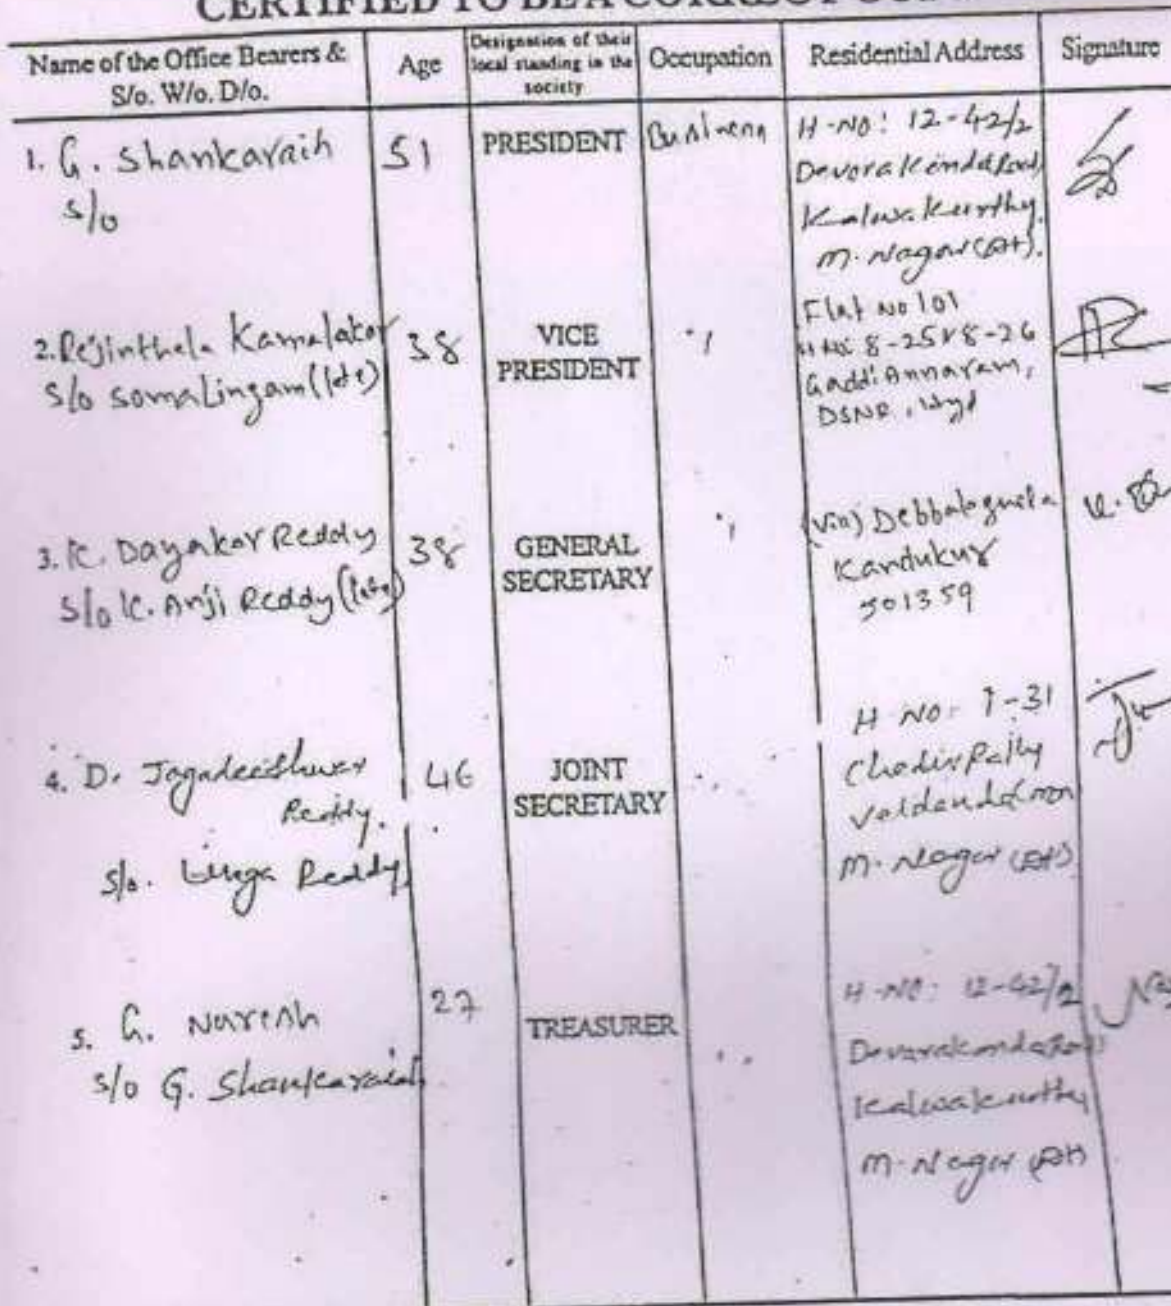 CERTIFIED TO BE A CORRECT
Name of the Office Bearers &
S/o. W/o. D/o.
Age
Designation of their
local standing in the
society
Occupation
Residential Address
Signature
1. G. Shankaraih
S/o
51
PRESIDENT
Business
H-NO: 12-42/2
Devarakonda Road
Kalwakurthy.
M. Nagar (Dt).
2. Rejinthala Kamalakar
S/o Somalingam (late)
38
VICE
PRESIDENT
"
Flat no 101
8-25
Gaddi Annaram,
DSNR, Hyd
3. K. Dayakar Reddy
S/o K. Anji Reddy (late)
38
GENERAL
SECRETARY
"
(Vill) Debbalaguda
Kandukur
501359
4. D. Jagadeeshwar
Reddy.
S/o. Linga Reddy
46
JOINT
SECRETARY
"
H-NO: 7-31
Veldanda (mn)
M. Nagar (Dt)
5. G. Naresh
S/o G. Shankaraiah
27
TREASURER
"
H-NO: 12-42/2
Devarakonda Road
Kalwakurthy
M. Nagar (Dt)